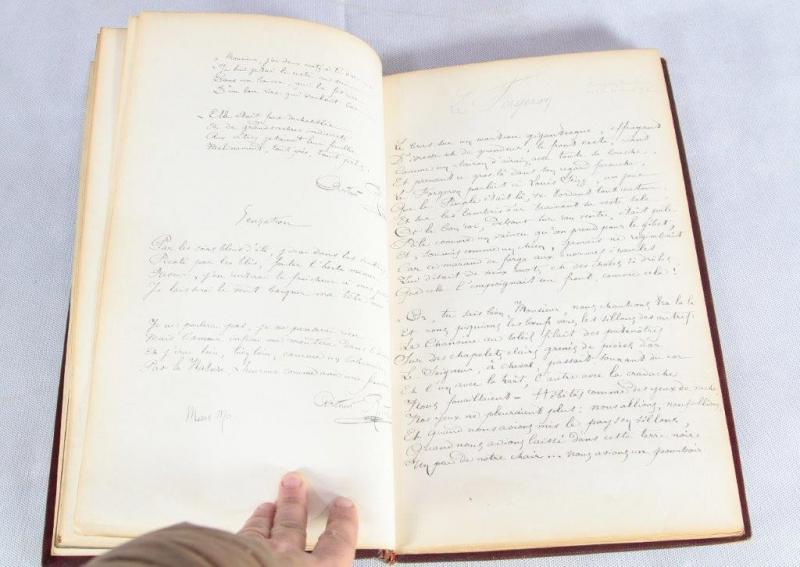 – Monsieur, j'ai deux mots à te
Je lui jetai le reste au
Dans un baiser, qui la fit
D'un bon rire qui voulait
– Elle était fort déshabillée
Et de grands arbres indiscrets
Aux vitres jetaient leur feuillée
Malinement, tout près, tout près.
Arthur
Sensation
Par les soirs bleus d'été, j'irai dans les
Picoté par les blés, fouler l'herbe menue
Rêveur, j'en sentirai la fraîcheur à mes
Je laisserai le vent baigner ma tête
Je ne parlerai pas, je ne penserai rien
Mais l'amour infini me montera dans
Et j'irai loin, bien loin, comme un
Par la Nature, – heureux comme avec une
Arthur
Mars
Le Forgeron
Le bras sur un marteau gigantesque, effrayant
D'ivresse et de grandeur, le front vaste, riant
Comme un clairon d'airain, avec toute sa bouche,
Et prenant ce gros-là dans son regard farouche,
Le Forgeron parlait à Louis Seize, un jour
Que le Peuple était là, se tordant tout autour,
Et sur les lambris d'or traînant sa veste sale.
Or le bon roi, debout sur son ventre, était pâle
Pâle comme un vaincu qu'on prend pour le gibet,
Et, soumis comme un chien, jamais ne regimbait
Car ce maraud de forge aux énormes épaules
Lui disait de vieux mots et des choses si drôles,
Que cela l'empoignait au front, comme cela!
– Or, tu sais bien, Monsieur, nous chantions tra la la
Et nous piquions les bœufs vers les sillons des autres:
Le Chanoine au soleil filait des patenôtres
Sur des chapelets clairs grenés de pièces d'or.
Le Seigneur, à cheval, passait, sonnant du cor
Et l'un avec la hart, l'autre avec la cravache
Nous fouaillaient – Hébétés comme des yeux de vache,
Nos yeux ne pleuraient plus: nous allions, nous allions,
Et quand nous avions mis le pays en sillons,
Quand nous avions laissé dans cette terre noire
Un peu de notre chair... nous avions un pourboire